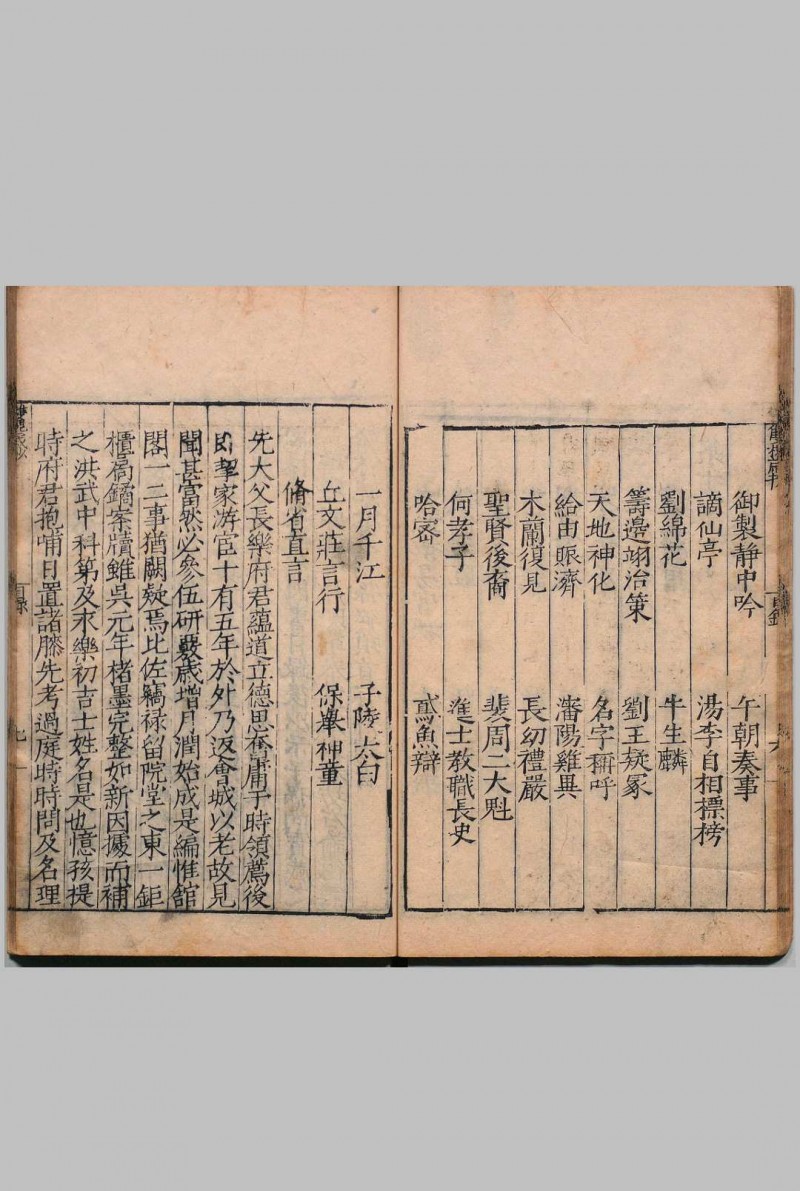 御製靜中吟 午朝奏事
謫仙亭 湯李自相標榜
劉綿花 牛生麟
籌邊翊治策 劉王疑冢
天地神化 名字稱呼
給由賑濟 瀋陽雞異
木蘭復見 長幼禮嚴
聖賢後裔 裴周二大魁
何孝子 進士教職長史
哈密 鳶魚辯
一月千江 子陵太白
丘文莊言行 保舉神童
脩省直言
先大父長樂府君蘊道立德思奮庸于時領薦後
即挈家游宦十有五年於外乃返會城以老故見
聞甚富然必參伍研覈歲增月潤始成是編惟館
閣一二事猶闕疑焉比佐
祿留院堂之東一鉅
櫃扃鐍案牘雖吳元年楮墨完整如新因據而補
之洪武中科第及永樂初吉士姓名是也憶孩提
時府君抱哺日置諸膝先考過庭時時問及名理
目錄